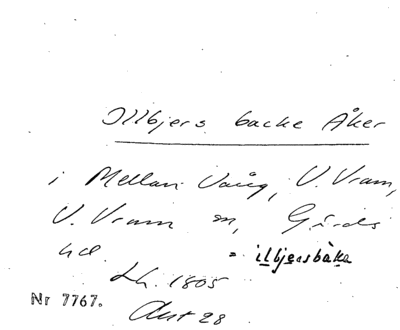 Illbjers backe Åker
i Mellan Vång, V. Vram,
V. Vram sn, Gärds
hd. = illbjersbàka
Lh. 1805
Nr 7767.
Akt 28